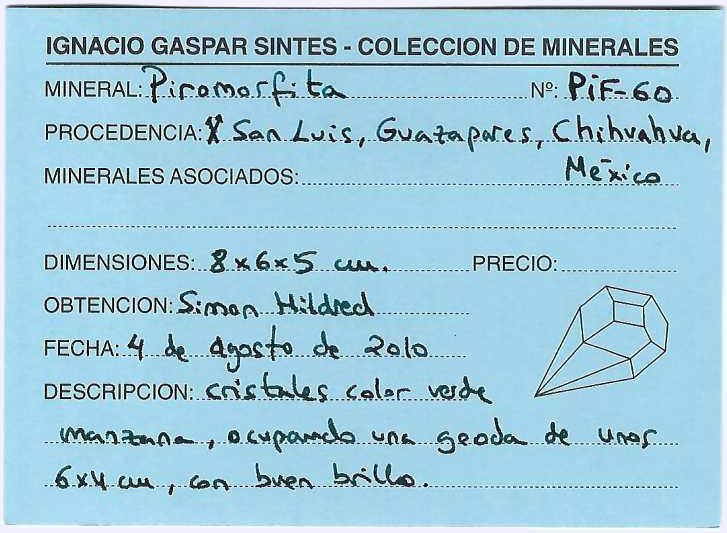 IGNACIO GASPAR SINTES - COLECCION DE MINERALES
MINERAL: Piromorfita Nº: PiF-60
PROCEDENCIA: X San Luis, Guazapares, Chihuahua,
MINERALES ASOCIADOS: México
DIMENSIONES: 8x6x5 cm. PRECIO:
OBTENCION: Simon Hildred
FECHA: 4 de agosto de 2010
DESCRIPCION: cristales color verde
manzana, ocupando una geoda de unos
6x4 cm, con buen brillo.